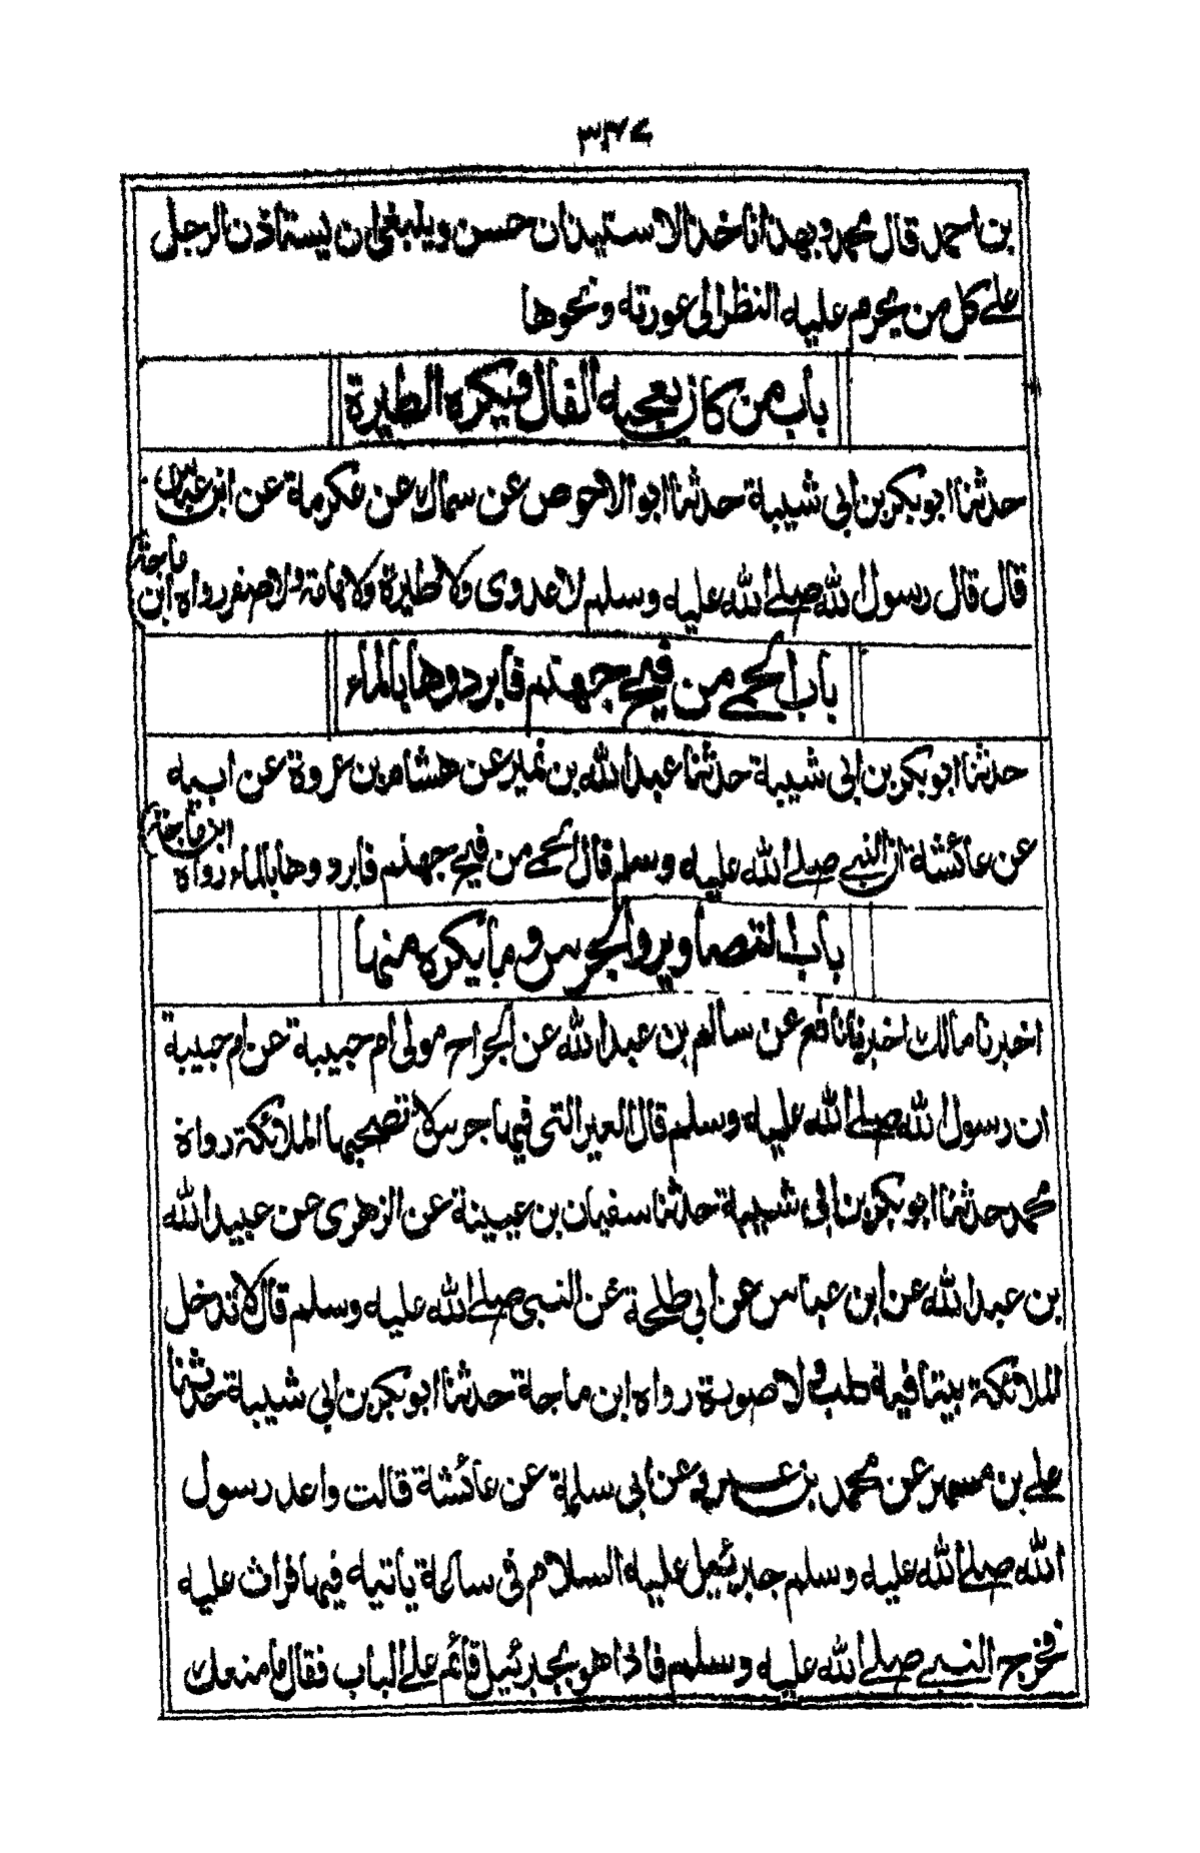 ۳۴۷
بن احمد قال محمد وبهذا ناخذ الاستیذان حسن وینبغی ان یستاذن الرجل
علے کل من یحرم علیه النظر الی عورته ونحوها
باب من کان یعجبه الفال ویکره الطیرة
حدثنا ابو بکر بن ابی شیبة حدثنا ابو الاحوص عن سماك عن عکرمة عن ابن عباس
قال قال رسول الله صلے الله علیه وسلم لا عدوی ولا طیرة ولا هامة ولا صفر رواه ابن ماجة
باب الحمے من فیح جهنم فابردوها بالماء
حدثنا ابو بکر بن ابی شیبة حدثنا عبد الله بن نمیر عن هشام بن عروة عن ابیه
عن عائشة ان النبے صلے الله علیه وسلم قال الحمے من فیح جهنم فابردوها بالماء رواه ابن ماجة
باب التصاویر والجرس وما یکره منها
اخبرنا مالك اخبرنا نافع عن سالم بن عبد الله عن الجراح مولی ام حبیبة عن ام حبیبة
ان رسول الله صلے الله علیه وسلم قال العیر التی فیها جرس لا تصحبها الملائکة رواه
محمد حدثنا ابو بکر بن ابی شیبة حدثنا سفیان بن عیینة عن الزهری عن عبید الله
بن عبد الله عن ابن عباس عن ابی طلحة عن النبی صلے الله علیه وسلم قال لا تدخل
الملائکة بیتا فیه کلب ولا صورة رواه ابن ماجة حدثنا ابو بکر بن ابی شیبة حدثنا
علے بن مسهر عن محمد بن عمرو عن ابی سلمة عن عائشة قالت واعد رسول
الله صلے الله علیه وسلم جبرئیل علیه السلام فی ساعة یاتیه فیها فراث علیه
فخرج النبے صلے الله علیه وسلم فاذا هو بجبرئیل قائم علے الباب فقال ما منعك